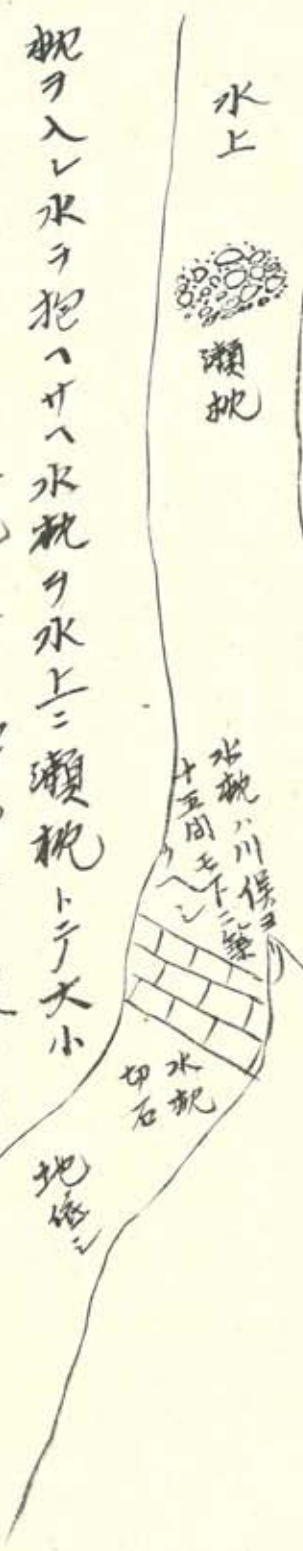 水上
瀬枕
水枕ハ川俣ヨ
十五間モ下ニ築
ヘシ
水枕
切石
地底ニ
枕ヲ入レ水ヲ抱ヘサヘ水枕ヲ水上ニ瀬枕トテ大小